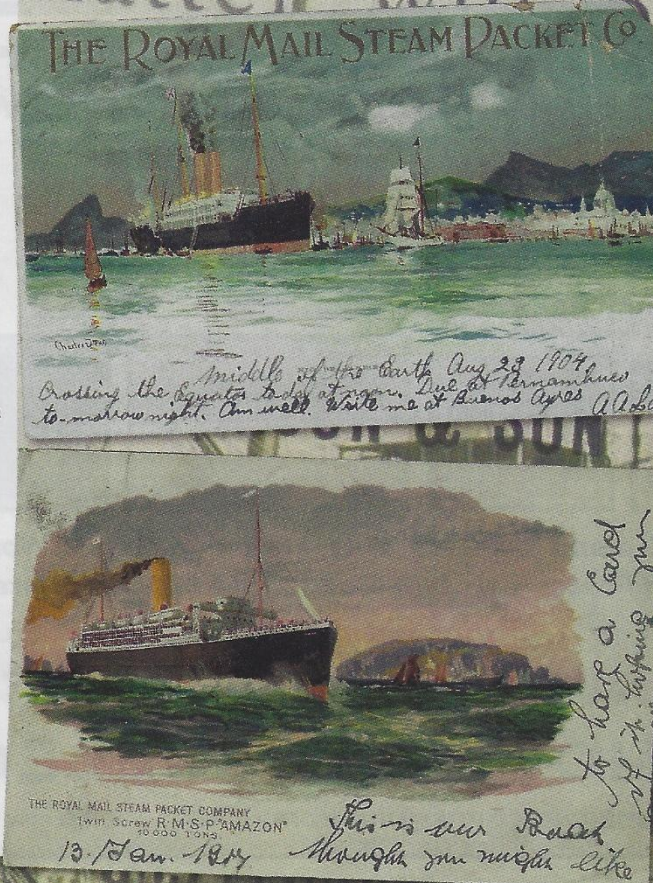 THE ROYAL MAIL STEAM PACKET Co.
Middle of the Earth Aug 23 1904.
Crossing the Equator today at noon. Due at Pernambuco
to-morrow night. Am well. Write me at Buenos Ayres
& SON
THE ROYAL MAIL STEAM PACKET COMPANY
Twin Screw R·M·S·P "AMAZON"
10000 TONS.
13. Jan. 1907
This is our Boat
thought you might like
to have a Card
of it. hoping you